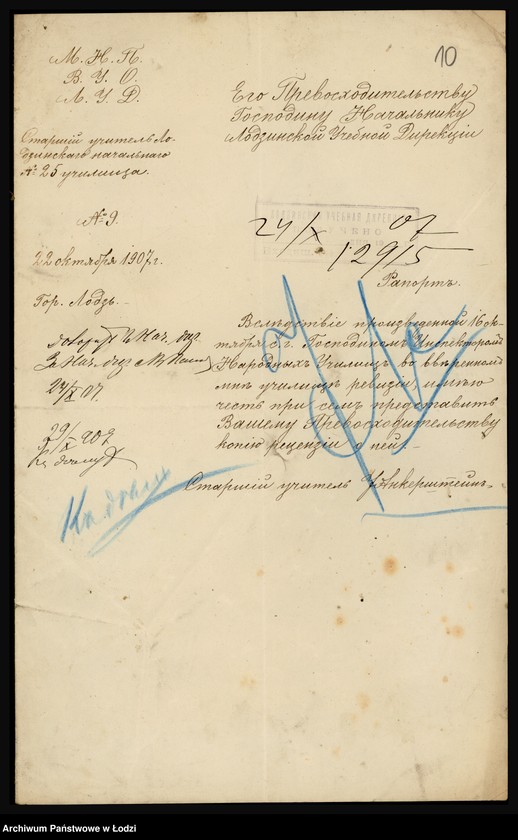 10
М. Н. П.
В. У. О.
Л. У. Д.
Старшій учитель Ло-
дзинскаго начальнаго
№ 25 училища.
№ 9.
22 октября 1907 г.
Гор. Лодзь.
Его Превосходительству
Господину Начальнику
Лодзинской Учебной Дирекціи
24/X 07
129/5
Рапортъ.
Вслѣдствіе произведенной 16 ок-
тября с. г. Господиномъ Инспекторомъ
Народныхъ Училищъ во ввѣренномъ
мнѣ училищѣ ревизіи, имѣю
честь при семъ представить
Вашему Превосходительству
копію рецензіи о ней.
Старшій учитель
24/X 07.
29/X 907
Archiwum Państwowe w Łodzi